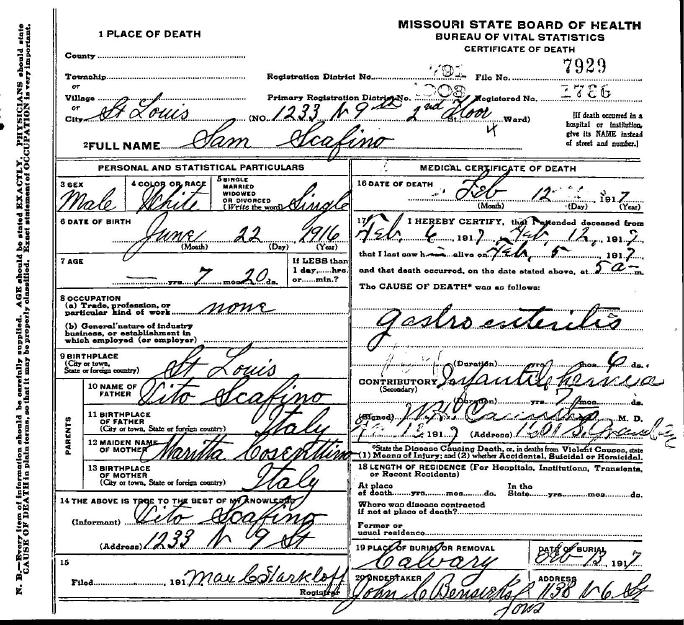 MISSOURI STATE BOARD OF HEALTH
BUREAU OF VITAL STATISTICS
CERTIFICATE OF DEATH
1 PLACE OF DEATH
County
Township
or
Village
or
City St Louis
Registration District No. 791
File No. 7929
Primary Registration District No. 1003
Registered No. 1736
(NO. 1233 N 9th 2nd Floor St. 4 Ward)
[If death occurred in a
hospital or institution,
give its NAME instead
of street and number.]
2 FULL NAME Sam Scafino
PERSONAL AND STATISTICAL PARTICULARS
3 SEX
Male
4 COLOR OR RACE
White
5 SINGLE
MARRIED
WIDOWED
OR DIVORCED
(Write the word) Single
6 DATE OF BIRTH
June 22 1916
(Month) (Day) (Year)
7 AGE
— yrs. 7 mos. 20 ds.
If LESS than
1 day,....hrs.
or....min.?
8 OCCUPATION
(a) Trade, profession, or
particular kind of work none
(b) General nature of industry
business, or establishment in
which employed (or employer)
9 BIRTHPLACE
(City or town,
State or foreign country) St Louis
PARENTS
10 NAME OF
FATHER Vito Scafino
11 BIRTHPLACE
OF FATHER
(City or town, State or foreign country) Italy
12 MAIDEN NAME
OF MOTHER Maritta Cosenttino
13 BIRTHPLACE
OF MOTHER
(City or town, State or foreign country) Italy
14 THE ABOVE IS TRUE TO THE BEST OF MY KNOWLEDGE
(Informant) Vito Scafino
(Address) 1233 N 9 St
15
Filed 191 Max C Starkloff
Registrar
MEDICAL CERTIFICATE OF DEATH
16 DATE OF DEATH Feb 12 1917
(Month) (Day) (Year)
17 I HEREBY CERTIFY, that I attended deceased from
Feb, 6 1917, Feb 12, 1917
that I last saw h alive on Feb, 5 1917
and that death occurred, on the date stated above, at 5 a m.
The CAUSE OF DEATH* was as follows:
Gastro enteritis
(Duration) yrs. mos. 6 ds.
CONTRIBUTORY Infantile
(Secondary)
(Duration) yrs. 7 mos. ds.
(Signed) M. D.
1917 (Address)
*State the Disease Causing Death, or, in deaths from Violent Causes, state
(1) Means of Injury; and (2) whether Accidental, Suicidal or Homicidal.
18 LENGTH OF RESIDENCE (For Hospitals, Institutions, Transients,
or Recent Residents)
At place
of death....yrs....mos....ds.
In the
State....yrs....mos....ds.
Where was disease contracted
if not at place of death?
Former or
usual residence
19 PLACE OF BURIAL OR REMOVAL
Calvary
DATE OF BURIAL
Feb 13 1917
20 UNDERTAKER
John C Bensiek
ADDRESS
1138 N 6 St
N. B.—Every item of information should be carefully supplied. AGE should be stated EXACTLY. PHYSICIANS should state
CAUSE OF DEATH in plain terms, so that it may be properly classified. Exact statement of OCCUPATION is very important.